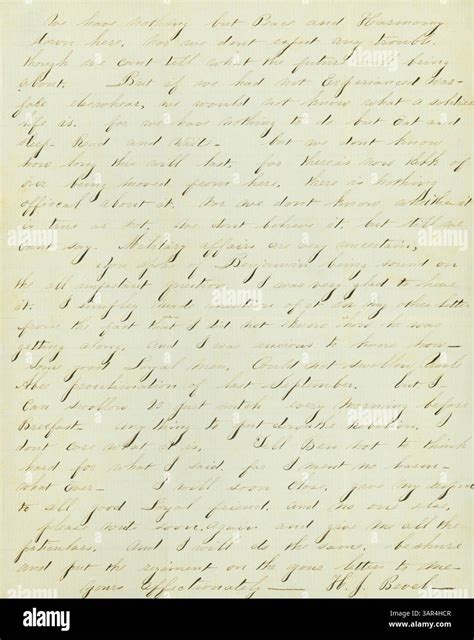 We have nothing but Peace and Harmony
down here. Nor we dont expect any trouble.
though we cant tell what the future will bring
about. But if we had not Experianced War-
fare elsewhear, we would not know what a soldiers
life is. for we have nothing to do but Eat and
sleep. Read and write. but we dont know
how long this will last. for there is now talk of
our being moved from here. there is nothing
official about it. Nor we dont know whether it
is true or not. We dont believe it. but still we
cant say. Military affairs are very uncertain,
You spoke of Benjamin being sound on
the all important question. I was very glad to hear
it. I simply made mention of it in my other letter
from the fact that I did not know how he was
getting along. And I was anxious to know how
some good Loyal men. Could not swallow Uncle
Abes proclamation of last September. but I
Can swallow it just such every morning before
Breakfast. any thing to put down the rebellion. I
dont care what it is. Tell Ben not to think
hard for what I said. for I ment no harm-
what Ever- I will soon close. give my regards
to all good Loyal friend. and no one else.
please write soon again and give me all the
paticulars. And I will do the same. be shure
and put the regiment on the your letters to me
Yours affectionately— H. J.
alamy
alamy
Image ID: 3AR4HCR
www.alamy.com